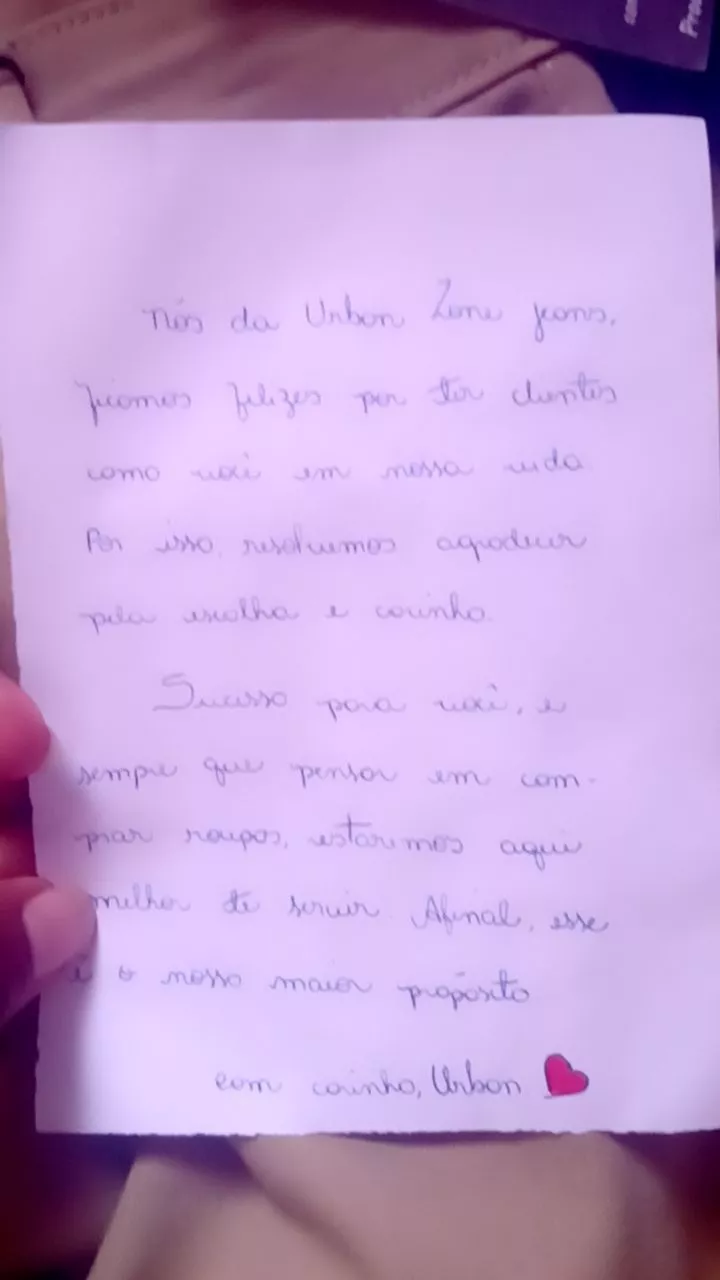 Nós da Urban Zone jeans,
ficamos felizes por ter clientes
como você em nossa vida
Por isso, resolvemos agradecer
pela escolha e carinho.
Sucesso para você, e
sempre que pensar em com-
prar roupas, estaremos aqui
melhor te servir. Afinal, esse
é o nosso maior propósito
com carinho, Urban